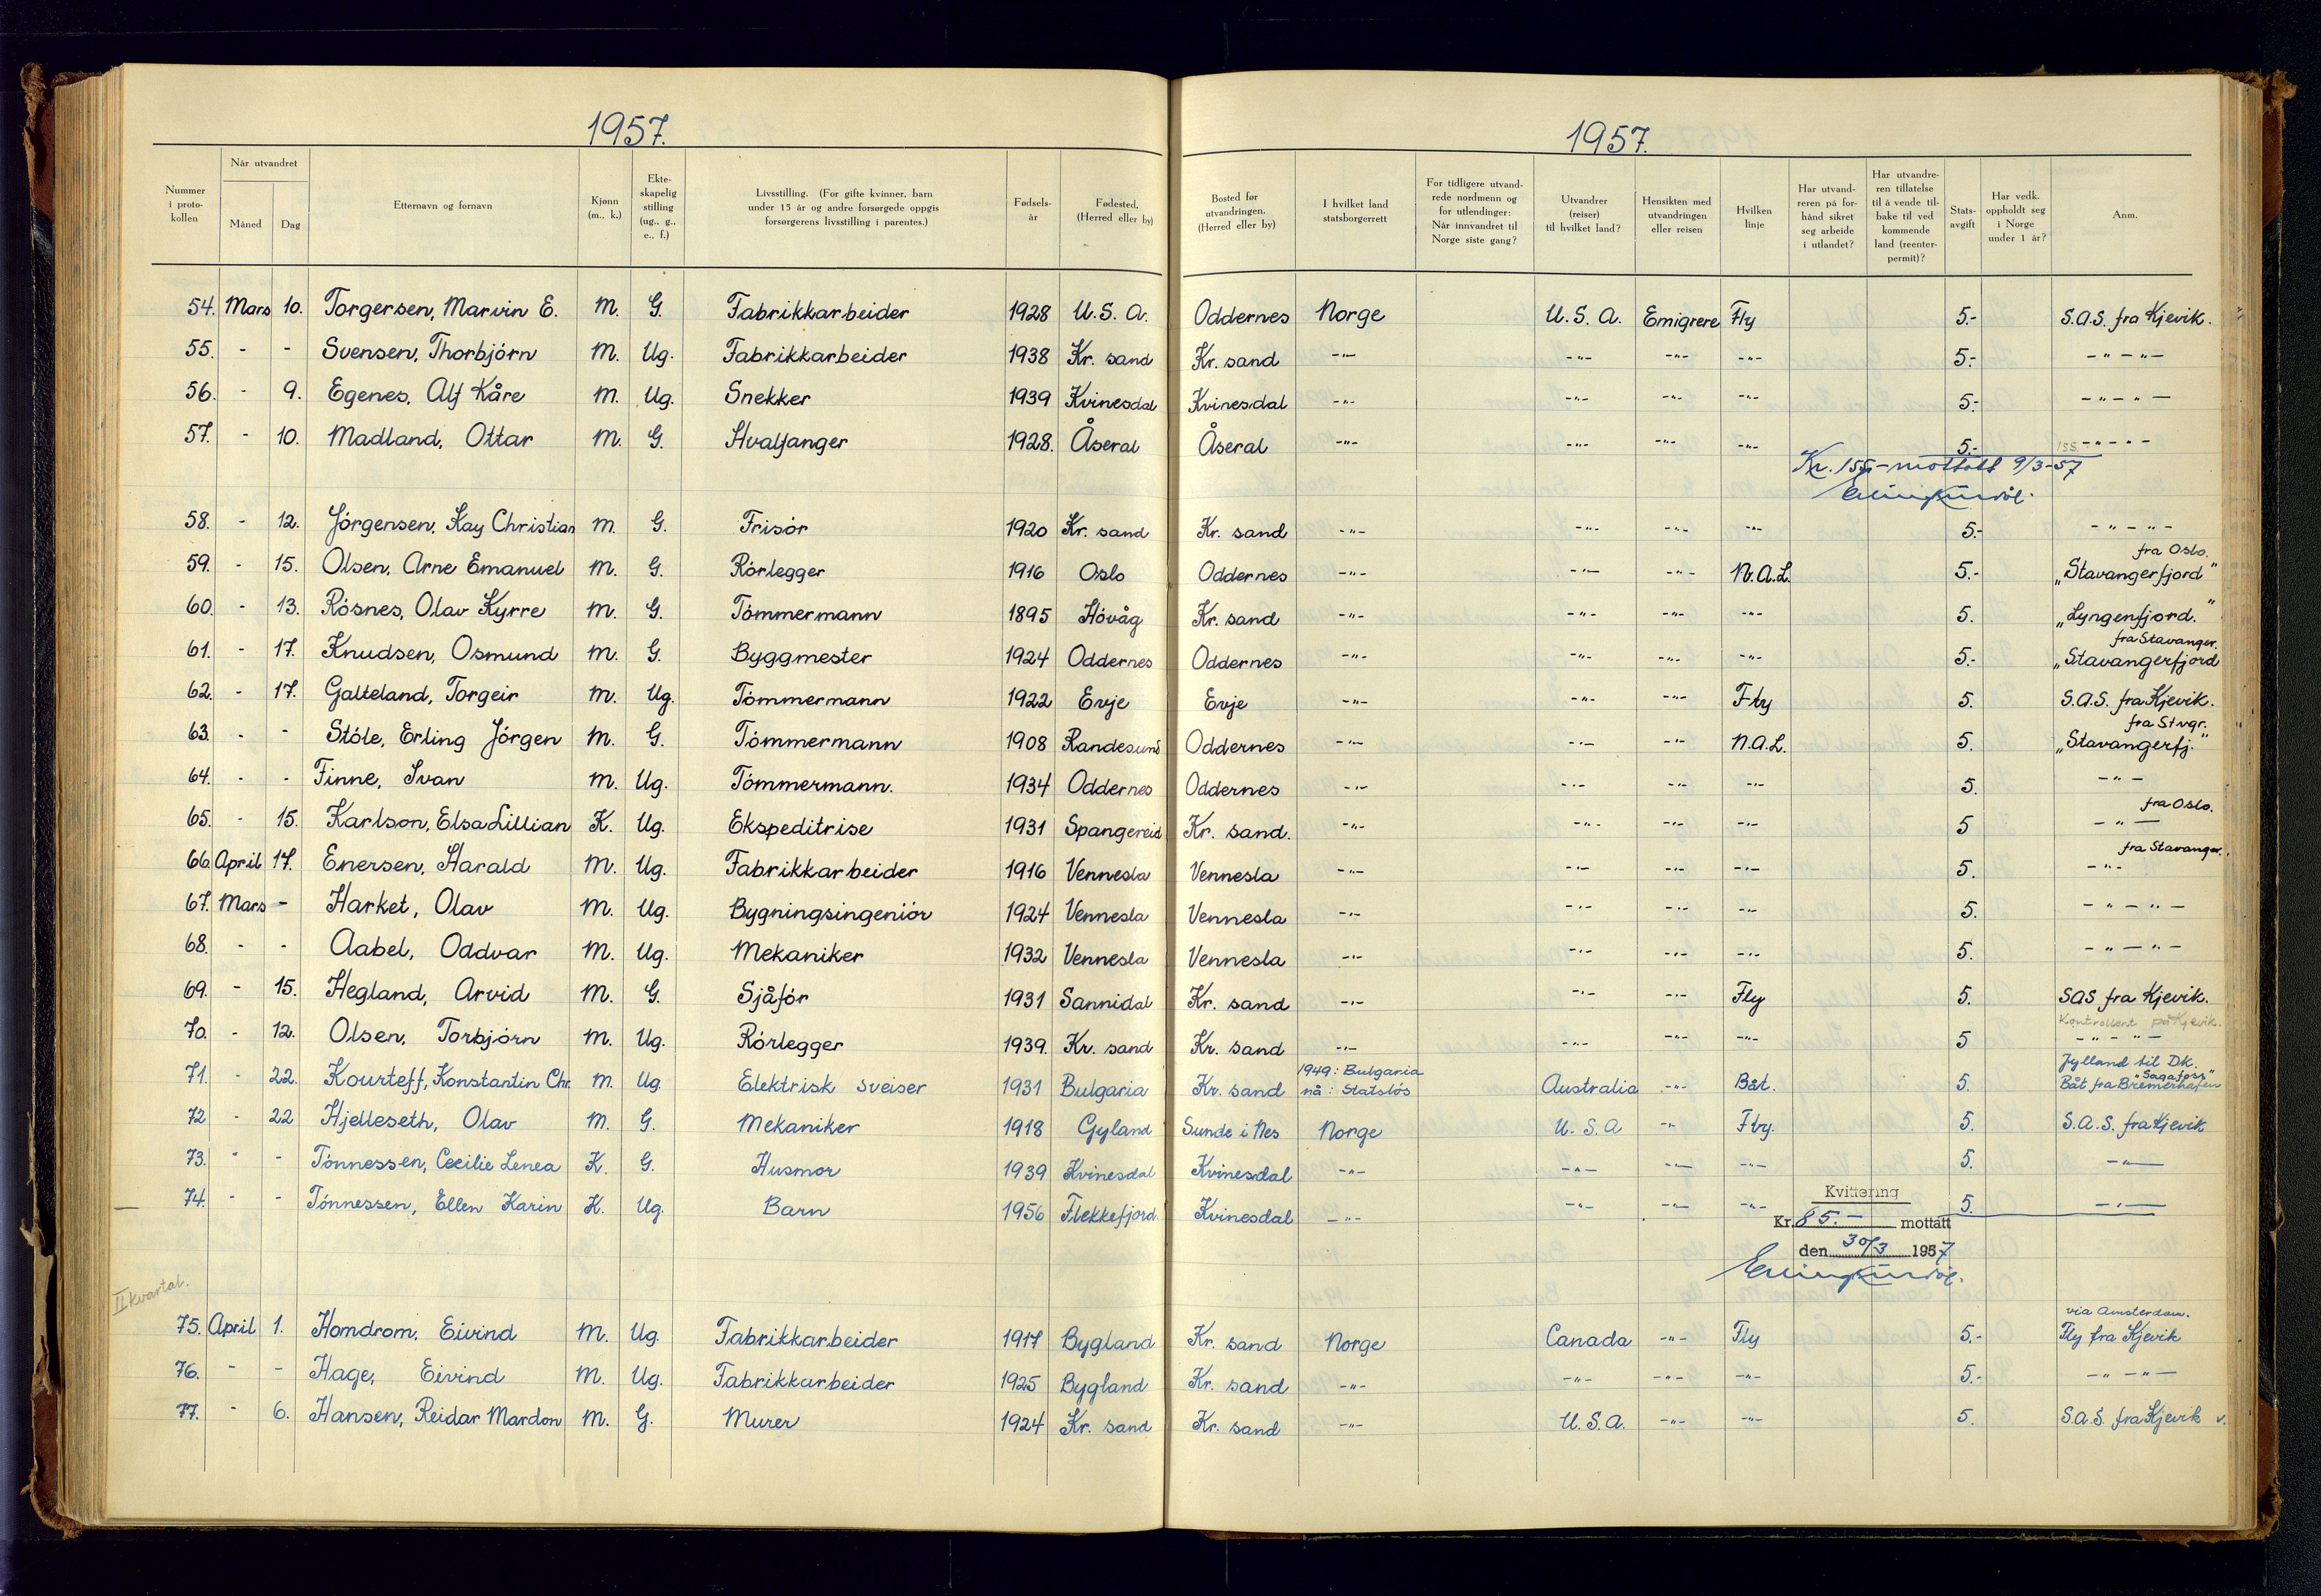 1957.
1957.
Nummer i proto-kollen | Når utvandret Måned Dag | Etternavn og fornavn | Kjønn (m., k.) | Ekte-skapelig stilling (ug., g., e., f.) | Livsstilling. (For gifte kvinner, barn under 15 år og andre forsørgede oppgis forsørgerens livsstilling i parentes.) | Fødsels-år | Fødested, (Herred eller by) | Bosted før utvandringen. (Herred eller by) | I hvilket land statsborgerrett | For tidligere utvand-rede nordmenn og for utlendinger: Når innvandret til Norge siste gang? | Utvandrer (reiser) til hvilket land? | Hensikten med utvandringen eller reisen | Hvilken linje | Har utvand-reren på for-hånd sikret seg arbeide i utlandet? | Har utvandre-ren tillatelse til å vende til-bake til ved kommende land (reenter-permit)? | Stats-avgift | Har vedk. oppholdt seg i Norge under 1 år? | Anm.
54. Mars 10. Torgersen, Marvin E. M. G. Fabrikkarbeider 1928 U.S.A. Oddernes Norge U.S.A. Emigrere Fly 5.- S.A.S. fra Kjevik.
55. - - Svensen, Thorbjörn M. Ug. Fabrikkarbeider 1938 Kr. sand Kr. sand -"- -"- -"- -"- 5.- -"-"-
56. - 9. Egenes, Alf Kåre M. Ug. Snekker 1939 Kvinesdal Kvinesdal -"- -"- -"- -"- 5.- -"-"-
57. - 10. Madland, Ottar M. G. Hvalfanger 1928. Åseral Åseral -"- -"- -"- -"- 5.- 155 -"-"-
Kr. 155,- mottatt 9/3-57
58. - 12. Jörgensen, Kay Christian M. G. Frisör 1920 Kr. sand Kr. sand -"- -"- -"- -"- 5.- -"-"-
fra Oslo.
59. - 15. Olsen, Arne Emanuel M. G. Rörlegger 1916 Oslo Oddernes -"- -"- -"- N.A.L. 5.- „Stavangerfjord"
60. - 13. Rösnes, Olav Kyrre M. G. Tömmermann 1895 Hövåg Kr. sand -"- -"- -"- -"- 5. „Lyngenfjord."
fra Stavanger.
61. - 17. Knudsen, Osmund M. G. Byggmester 1924 Oddernes Oddernes -"- -"- -"- -"- 5.- „Stavangerfjord
62. - 17. Galteland, Torgeir M. Ug. Tömmermann 1922 Evje Evje -"- -"- -"- Fly 5. S.A.S. fra Kjevik.
fra Stvgr.
63. - - Stöle, Erling Jörgen M. G. Tömmermann 1908 Randesund Oddernes -"- -"- -"- N.A.L. 5. „Stavangerfj."
64. - - Finne, Ivan M. Ug. Tömmermann. 1934 Oddernes Oddernes -"- -"- -"- -"- 5. -"-
fra Oslo.
65. - 15. Karlson, Elsa Lillian K. Ug. Ekspeditrise 1931 Spangereid Kr. sand. -"- -"- -"- -"- 5 -"-
fra Stavanger.
66. April 17. Enersen, Harald M. Ug. Fabrikkarbeider 1916 Vennesla Vennesla -"- -"- -"- -"- 5. -"-
67. Mars - Harket, Olav M. Ug. Bygningsingeniör 1924 Vennesla Vennesla -"- -"- -"- -"- 5. -"-"-
68. - - Aabel, Oddvar M. Ug. Mekaniker 1932 Vennesla Vennesla -"- -"- -"- -"- 5. -"-"-
69. - 15. Hegland, Arvid M. G. Sjåför 1931 Sannidal Kr. sand -"- -"- -"- Fly 5. SAS fra Kjevik.
Kontrollert på Kjevik.
70. - 12. Olsen, Torbjörn M. Ug. Rörlegger 1939. Kr. sand Kr. sand -"- -"- -"- -"- 5 -"-"-
1949: Bulgaria Jylland til DK.
"Sagafoss"
71. - 22. Kourteff, Konstantin Chr. M. Ug. Elektrisk sveiser 1931 Bulgaria Kr. sand nå: Statslös Australia -"- Båt. 5. Båt fra Bremerhafen
72 - 22 Hjelleseth, Olav M. G. Mekaniker 1918 Gyland Sunde i Nes Norge U.S.A -"- Fly. 5. S.A.S. fra Kjevik
73. - - Tönnessen, Cecilie Lenea K. G. Husmor 1939 Kvinesdal Kvinesdal -"- -"- -"- -"- 5. -"-
74. - - Tönnessen, Ellen Karin K. Ug. Barn 1956 Flekkefjord Kvinesdal -"- -"- -"- -"- 5. -"-
Kvittering
Kr. 85.- mottatt
den 30/3 1957
II kvartal.
via Amsterdam.
75. April 1. Homdrom, Eivind M. Ug. Fabrikkarbeider 1917 Bygland Kr. sand Norge Canada -"- Fly 5.- Fly fra Kjevik
76. - - Hage, Eivind M. Ug. Fabrikkarbeider 1925 Bygland Kr. sand -"- -"- -"- -"- 5.- -"-"-
77. - 6. Hansen, Reidar Mardon M. G. Murer 1924 Kr. sand Kr. sand -"- U.S.A. -"- -"- 5. S.A.S. fra Kjevik v.